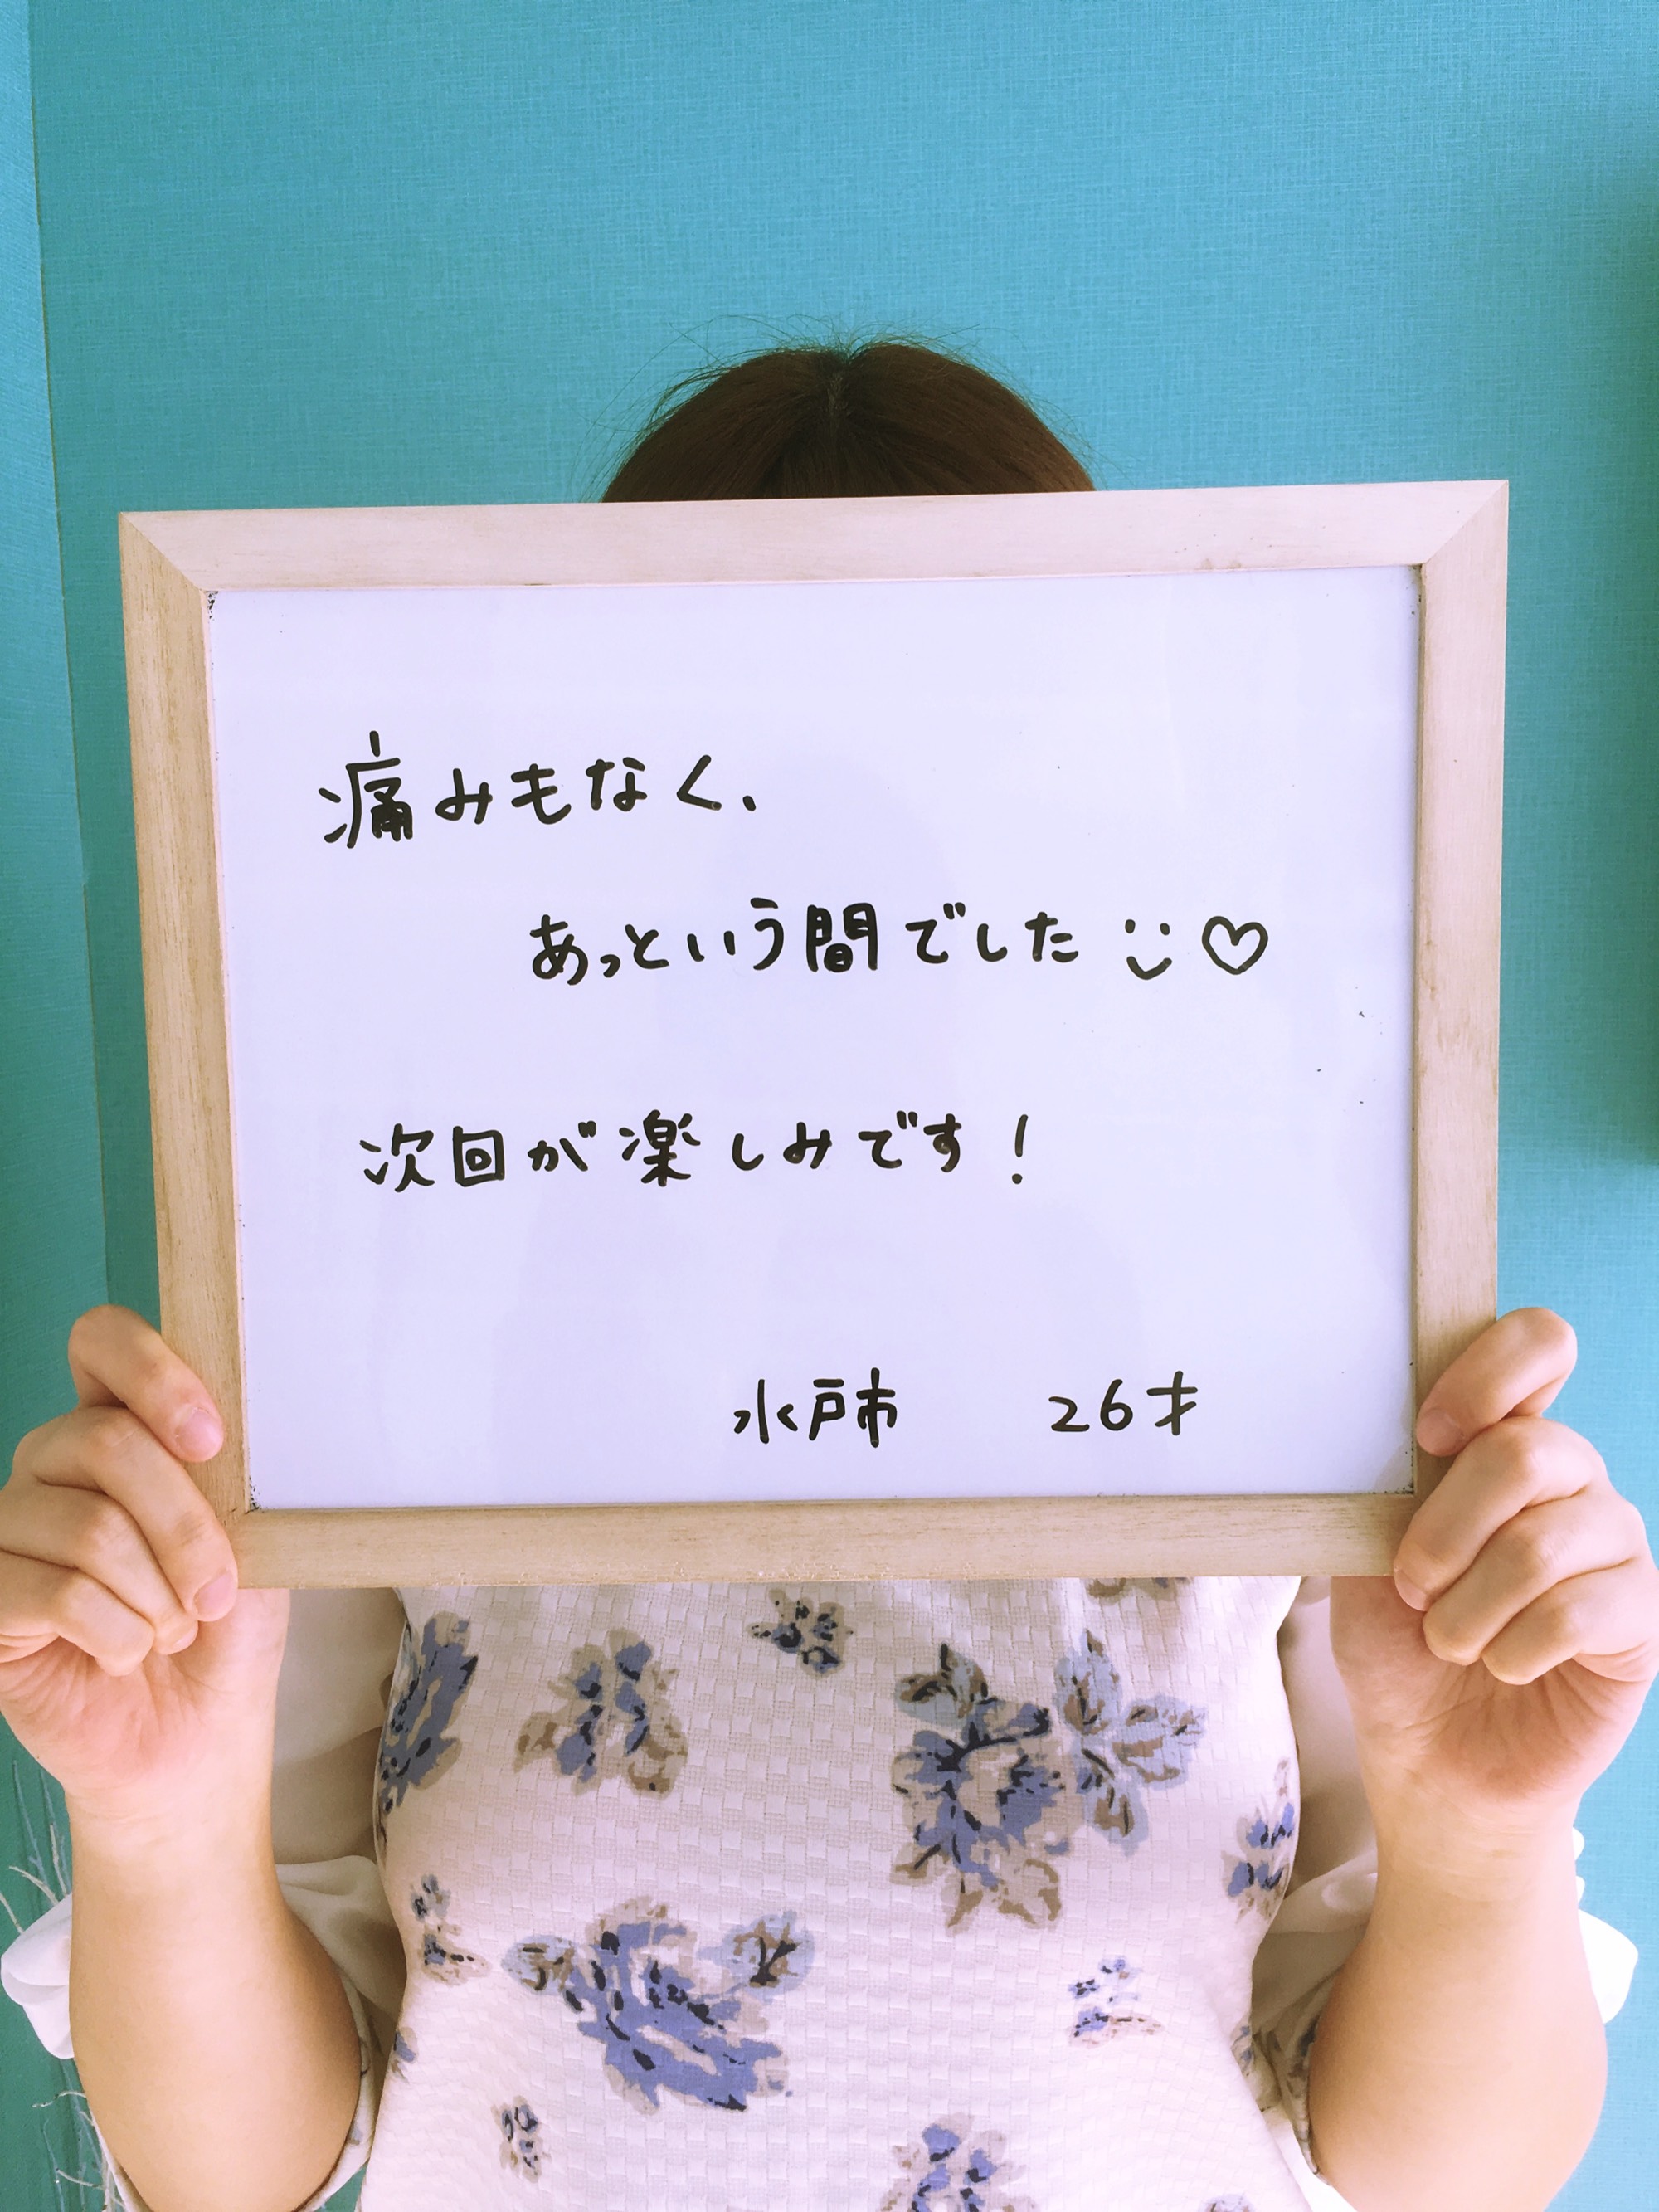 痛みもなく、
あっという間でした ¨̮ ♡
次回が楽しみです！
水戸市 26才